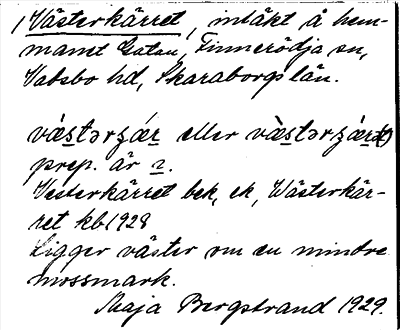 Västerkärret, intäkt å hem-
manet Gatan, Finnerödja sn,
Vadsbo hd, Skaraborgs län.
eller
prep. är
Vesterkärret bek, ek, Wästerkär-
ret kb 1928
Ligger väster om en mindre
mossmark.
Maja Bergstrand 1929.